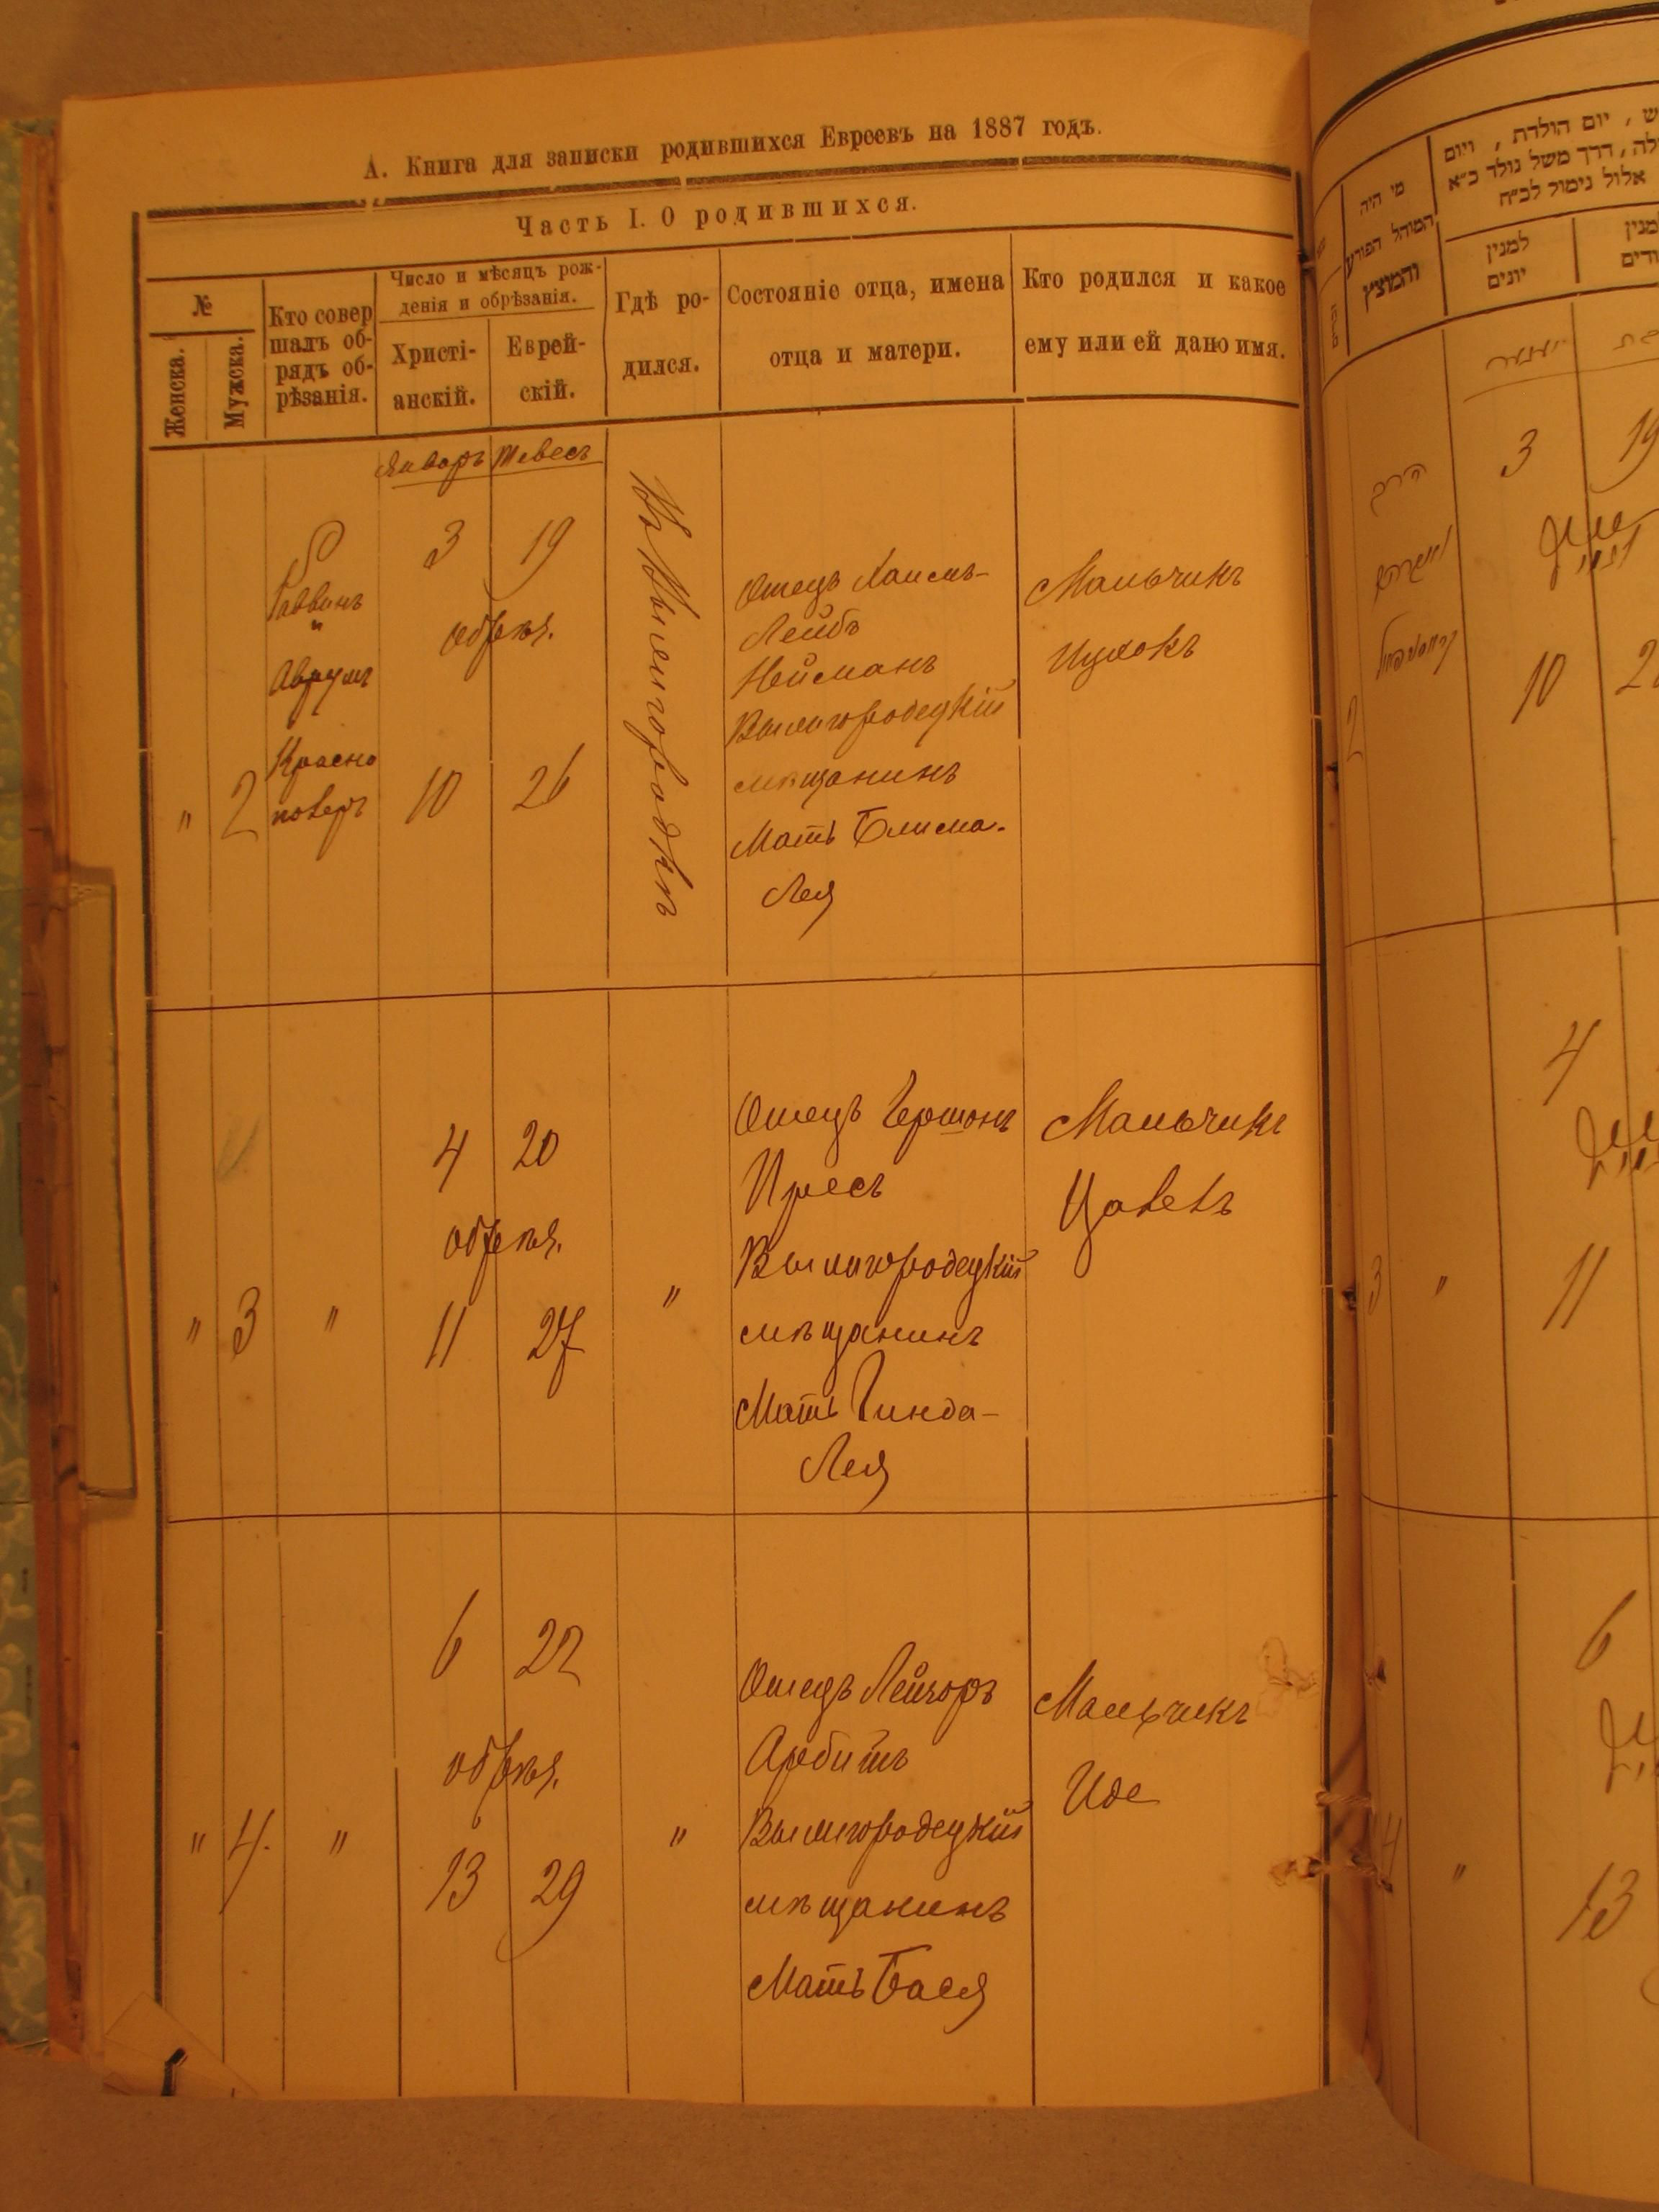 А. Книга для записки родившихся Евреевъ на 1887 годъ.
Часть I. О родившихся.
№
Женска.
Мужска.
Кто совер
шалъ об-
рядъ об-
рѣзанія.
Число и мѣсяцъ рож-
денія и обрѣзанія.
Христі-
анскій.
Еврей-
скій.
Гдѣ ро-
дился.
Состояніе отца, имена
отца и матери.
Кто родился и какое
ему или ей дано имя.
Январь Тевесъ
" 2
Раввинъ
"
Аврумъ
Красно
поверъ
3 19
обрѣз.
10 26
Въ Вышегородкѣ
Отецъ Хаимъ-
Лейбъ
Нейманъ
Вышгородецкій
мѣщанинъ
Мать Блима-
Лея
Мальчикъ
Ицхокъ
" 3 "
4 20
обрѣз.
11 27
"
Отецъ Гершонъ
Пресъ
Вышгородецкій
мѣщанинъ
Мать Гинда-
Лея
Мальчикъ
" 4. "
6 22
обрѣз.
13 29
"
Отецъ Лейзоръ
Арбитъ
Вышгородецкій
мѣщанинъ
Мать Бася
Мальчикъ
Иде
מי היה
המוהל הפורע
והמוצץ
ש , יום הולדת , ויום
לה, דרך משל נולד כ״א
אלול נימול לכ״ח
למנין
יונים
3 19
10 2
2
4
11
3 "
6
13
4 "